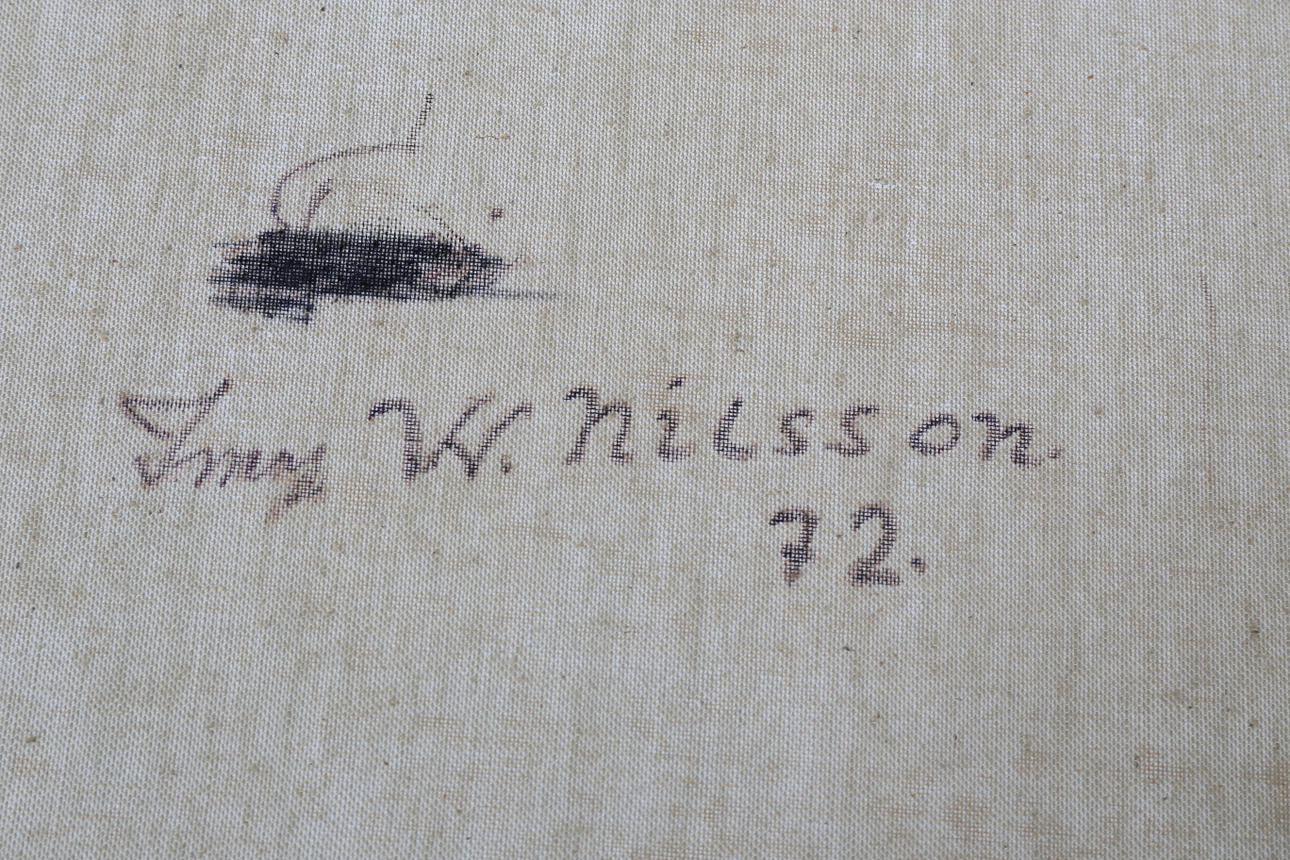 Imy W. Nilsson.
72.